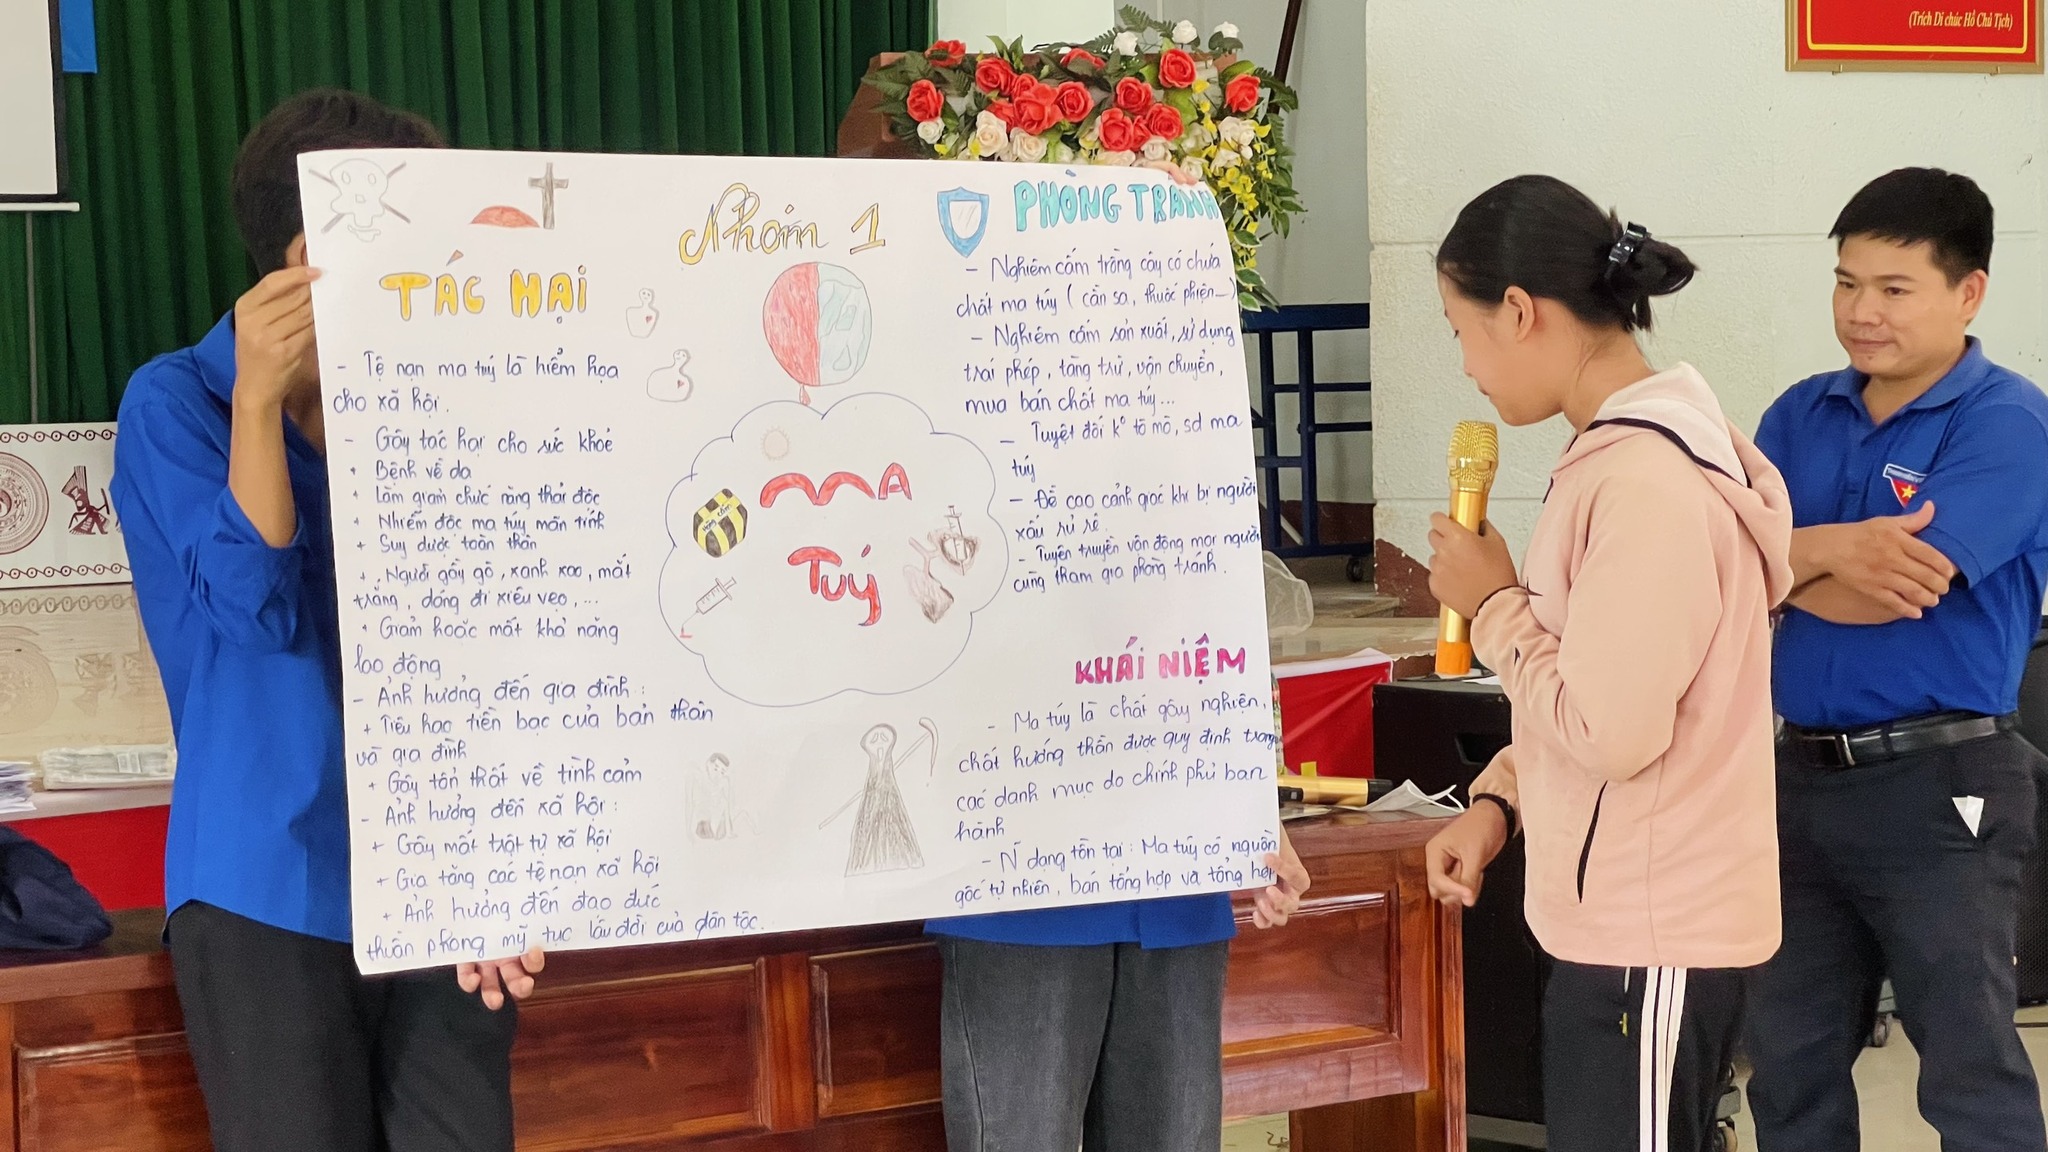 (Trích Di chúc Hồ Chủ Tịch)
Nhóm 1
TÁC HẠI
- Tệ nạn ma túy là hiểm họa
cho xã hội.
- Gây tác hại cho sức khoẻ
+ Bệnh về da
+ Làm giảm chức năng thải độc
+ Nhiễm độc ma túy mãn tính
+ Suy dược toàn thân
+ Người gầy gò, xanh xao, mắt
trắng, dáng đi xiêu vẹo, ...
+ Giảm hoặc mất khả năng
lao động
- Ảnh hưởng đến gia đình:
+ Tiêu hao tiền bạc của bản thân
và gia đình
+ Gây tổn thất về tình cảm
- Ảnh hưởng đến xã hội:
+ Gây mất trật tự xã hội
+ Gia tăng các tệ nạn xã hội
+ Ảnh hưởng đến đạo đức
thuần phong mỹ tục lâu đời của dân tộc.
MA
TUÝ
PHÒNG TRÁNH
- Nghiêm cấm trồng cây có chứa
chất ma túy (cần sa, thuốc phiện...)
- Nghiêm cấm sản xuất, sử dụng
trái phép, tàng trữ, vận chuyển,
mua bán chất ma túy...
- Tuyệt đối k° tò mò, sd ma
túy
- Đề cao cảnh giác khi bị người
xấu rủ rê.
- Tuyên truyền vận động mọi người
cùng tham gia phòng tránh.
KHÁI NIỆM
- Ma túy là chất gây nghiện,
chất hướng thần được quy định trong
các danh mục do chính phủ ban
hành
- N~ dạng tồn tại: Ma túy có nguồn
gốc tự nhiên, bán tổng hợp và tổng hợp